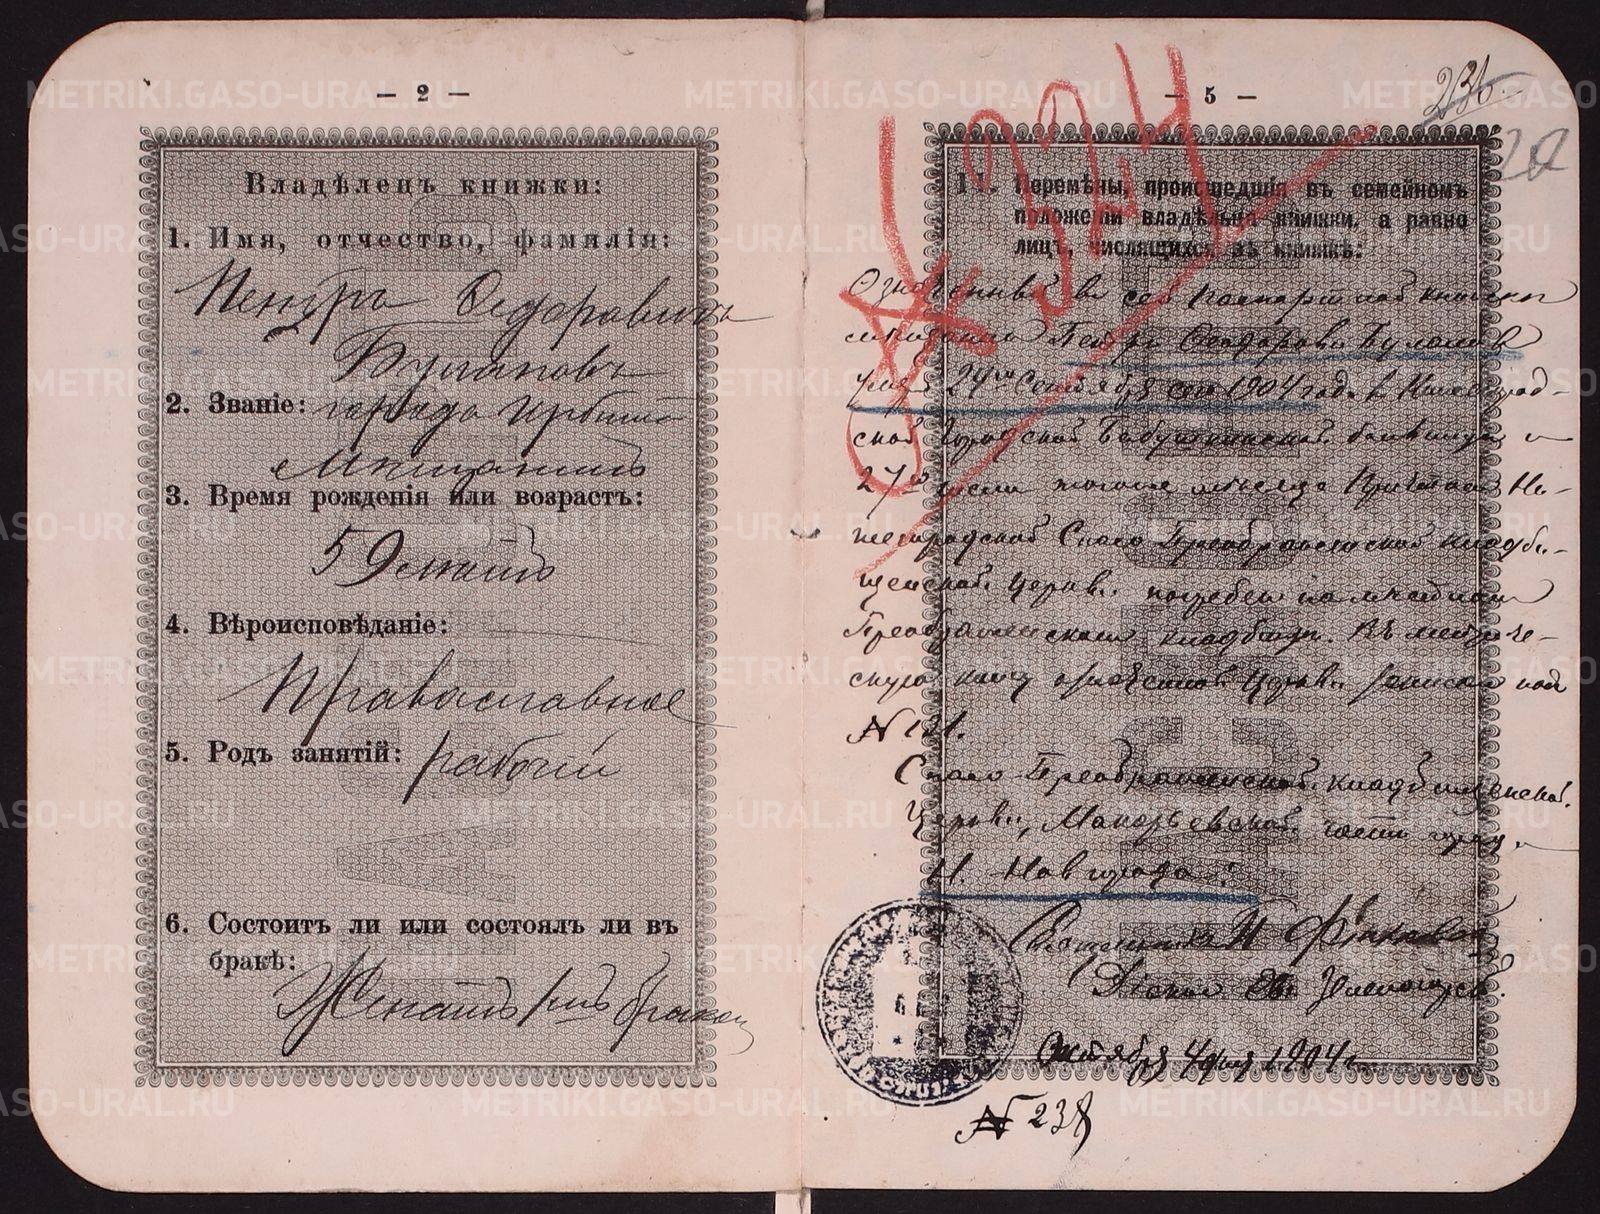 — 2 —
Владѣлецъ книжки:
1. Имя, отчество, фамилія:
Петръ Ѳедоровичъ
Булановъ
2. Званіе: города Ирбита
мѣщанинъ
3. Время рожденія или возрастъ:
59 лѣтъ
4. Вѣроисповѣданіе:
Православное
5. Родъ занятій: рабочій
6. Состоитъ ли или состоялъ ли въ
бракѣ:
Женатъ
— 5 —
Перемѣны, происшедшія въ семейномъ
положеніи владѣльца книжки, а равно
лицъ, числящихся въ книжкѣ:
Означенный въ сей паспортной книжкѣ
мѣщанинъ Петръ Ѳеодоровъ Булановъ
24го Сентября сего 1904 года въ Нижегород-
ской Городской Бабушкинской больницѣ и
27го числа того же мѣсяца Причтомъ Ни-
жегородской Спасо-Преображенской кладби-
щенской церкви погребенъ на мѣстномъ
Преображенскомъ кладбищѣ. Въ метриче-
скую книгу церкви записанъ подъ
№ 121.
Спасо-Преображенской кладбищенской
Церкви, Макарьевской части города
Н. Новгорода:
Священникъ
Октября 4 дня 1904 г.
№ 238
324
METRIKI.GASO-URAL.RU